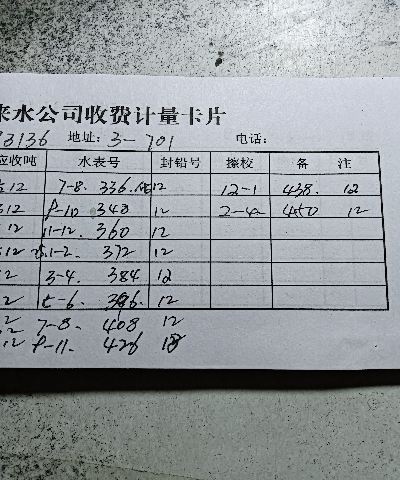 来水公司收费计量卡片
3136 地址: 3-701 电话:
应收吨 水表号 封铅号 擦校 备 注
12 7-8. 336. 12 12-1 438. 12
12 9-10 348 12 2-4 450 12
12 11-12. 360 12
12 1-2. 372 12
12 3-4. 384 12
2 5-6. 396. 12
12 7-8. 408 12
12 9-11. 426 18